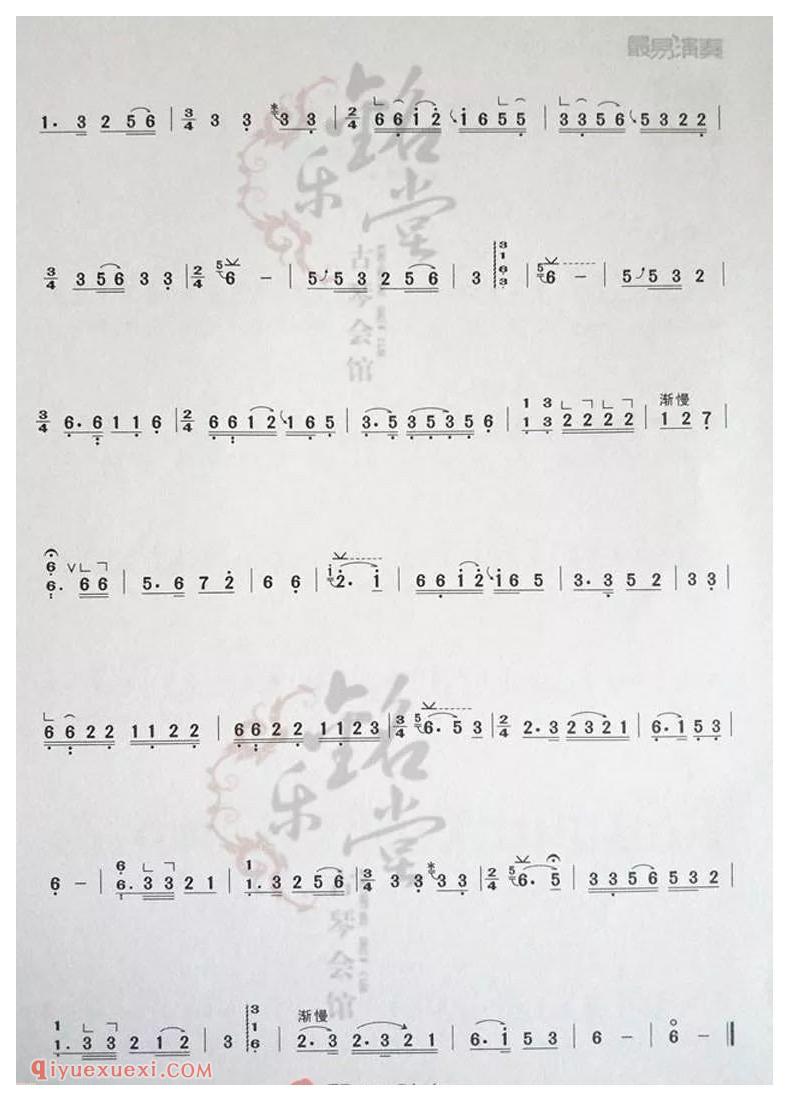 最易演奏
1. 3 2 5 6 | 3/4 3 3 3 3 | 2/4 6 6 i 2 i 6 5 5 | 3 3 5 6 5 3 2 2 |
3/4 3 5 6 3 3 | 2/4 5 6 - | 5 5 3 2 5 6 | 3 3 1 6 3 | 5 6 - | 5 5 3 2 |
3/4 6. 6 1 1 6 | 2/4 6 6 1 2 1 6 5 | 3. 5 3 5 3 5 6 | 1 3 1 3 2 2 2 2 | 渐慢 1 2 7 |
6 6. V 6 6 | 5. 6 7 2 | 6 6 | i 2. i | 6 6 i 2 i 6 5 | 3. 3 5 2 | 3 3 |
6 6 2 2 1 1 2 2 | 6 6 2 2 1 1 2 3 | 3/4 5 6. 5 3 | 2/4 2. 3 2 3 2 1 | 6. 1 5 3 |
6 - | 6 6. 3 3 2 1 | 1 1. 3 2 5 6 | 3/4 3 3 3 3 | 2/4 5 6. 5 | 3 3 5 6 5 3 2 |
1 1. 3 3 2 1 2 | 3 3 1 6 | 渐慢 2. 3 2. 3 2 1 | 6. i 5 3 | 6 - | 6 - ‖
铭乐堂
古琴会馆
铭乐堂
琴会馆
qiyuexuexi.com